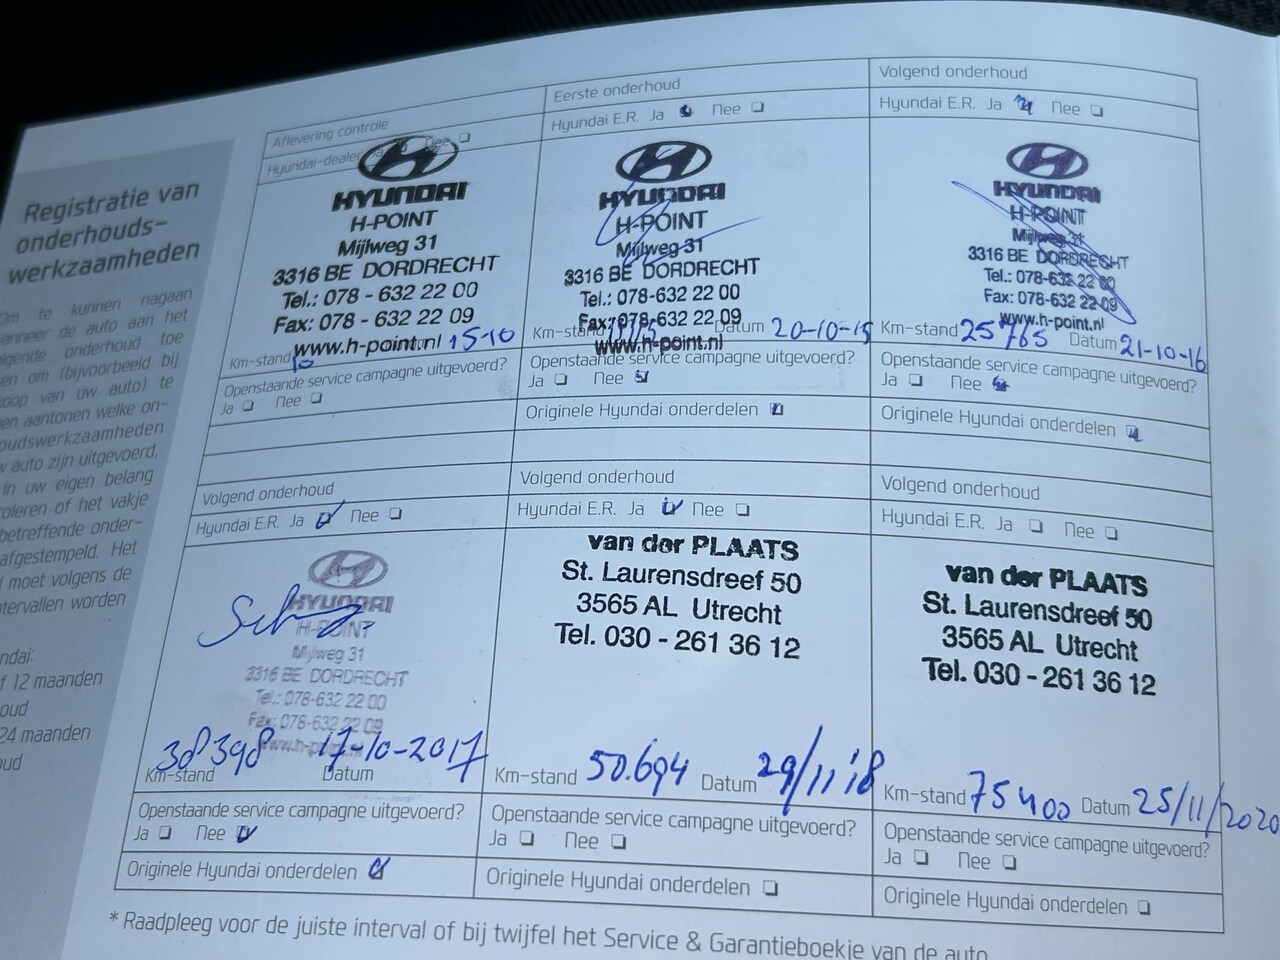 Registratie van
onderhouds-
werkzaamheden
Om te kunnen nagaan
wanneer de auto aan het
olgende onderhoud toe
en om (bijvoorbeeld bij
oop van uw auto) te
en aantonen welke on-
oudswerkzaamheden
w auto zijn uitgevoerd,
in uw eigen belang
roleren of het vakje
betreffende onder-
afgestempeld. Het
moet volgens de
ntervallen worden
ndai:
f 12 maanden
oud
24 maanden
ud
Aflevering controle
Hyundai-dealer Nee
HYUNDAI
H-POINT
Mijlweg 31
3316 BE DORDRECHT
Tel.: 078 - 632 22 00
Fax: 078 - 632 22 09
www.h-point.nl
Km-stand 10 15-10
Openstaande service campagne uitgevoerd?
Ja Nee
Eerste onderhoud
Hyundai E.R. Ja Nee
HYUNDAI
H-POINT
Mijlweg 31
3316 BE DORDRECHT
Tel.: 078-632 22 00
Fax: 078-632 22 09
www.h-point.nl
Km-stand Datum 20-10-15
Openstaande service campagne uitgevoerd?
Ja Nee
Originele Hyundai onderdelen
Volgend onderhoud
Hyundai E.R. Ja Nee
HYUNDAI
H-POINT
Mijlweg 31
3316 BE DORDRECHT
Tel.: 078-632 22 00
Fax: 078-632 22 09
www.h-point.nl
Km-stand 25765 Datum 21-10-16
Openstaande service campagne uitgevoerd?
Ja Nee
Originele Hyundai onderdelen
Volgend onderhoud
Hyundai E.R. Ja Nee
HYUNDAI
H-POINT
Mijlweg 31
3316 BE DORDRECHT
Tel.: 078-632 22 00
Fax: 078-632 22 09
www.h-point.nl
38398 17-10-2017
Km-stand Datum
Openstaande service campagne uitgevoerd?
Ja Nee
Originele Hyundai onderdelen
Volgend onderhoud
Hyundai E.R. Ja Nee
van der PLAATS
St. Laurensdreef 50
3565 AL Utrecht
Tel. 030 - 261 36 12
Km-stand 50.694 Datum 29/11 '18
Openstaande service campagne uitgevoerd?
Ja Nee
Originele Hyundai onderdelen
Volgend onderhoud
Hyundai E.R. Ja Nee
van der PLAATS
St. Laurensdreef 50
3565 AL Utrecht
Tel. 030 - 261 36 12
Km-stand 75400 Datum 25/11/2020
Openstaande service campagne uitgevoerd?
Ja Nee
Originele Hyundai onderdelen
* Raadpleeg voor de juiste interval of bij twijfel het Service & Garantieboekje van de auto